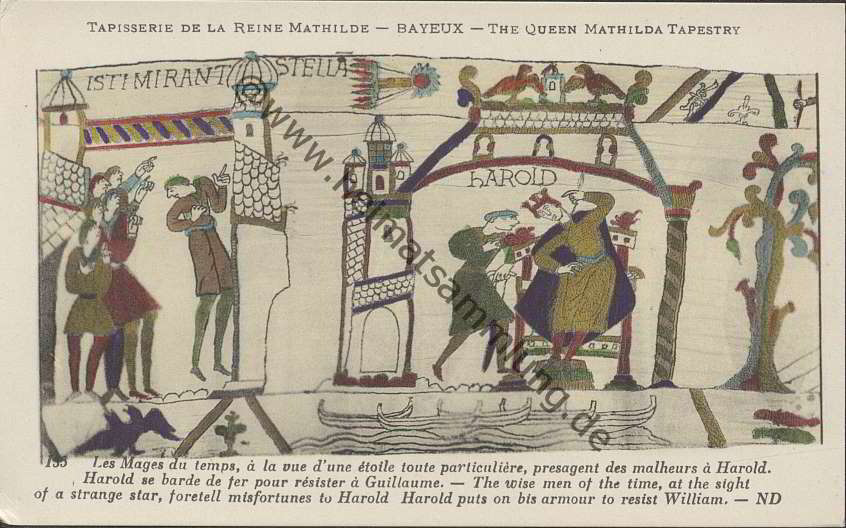 TAPISSERIE DE LA REINE MATHILDE — BAYEUX — THE QUEEN MATHILDA TAPESTRY
ISTI MIRANT STELLA
HAROLD
www.heimatsammlung.de
135 Les Mages du temps, à la vue d'une étoile toute particulière, presagent des malheurs à Harold.
Harold se barde de fer pour résister à Guillaume. — The wise men of the time, at the sight
of a strange star, foretell misfortunes to Harold Harold puts on bis armour to resist William. — ND